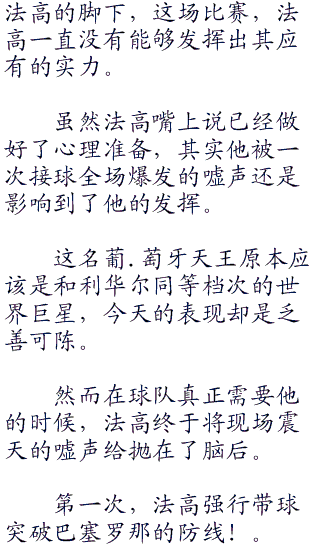 法高的脚下，这场比赛，法
高一直没有能够发挥出其应
有的实力。
虽然法高嘴上说已经做
好了心理准备，其实他被一
次接球全场爆发的嘘声还是
影响到了他的发挥。
这名葡.萄牙天王原本应
该是和利华尔同等档次的世
界巨星，今天的表现却是乏
善可陈。
然而在球队真正需要他
的时候，法高终于将现场震
天的嘘声给抛在了脑后。
第一次，法高强行带球
突破巴塞罗那的防线！。